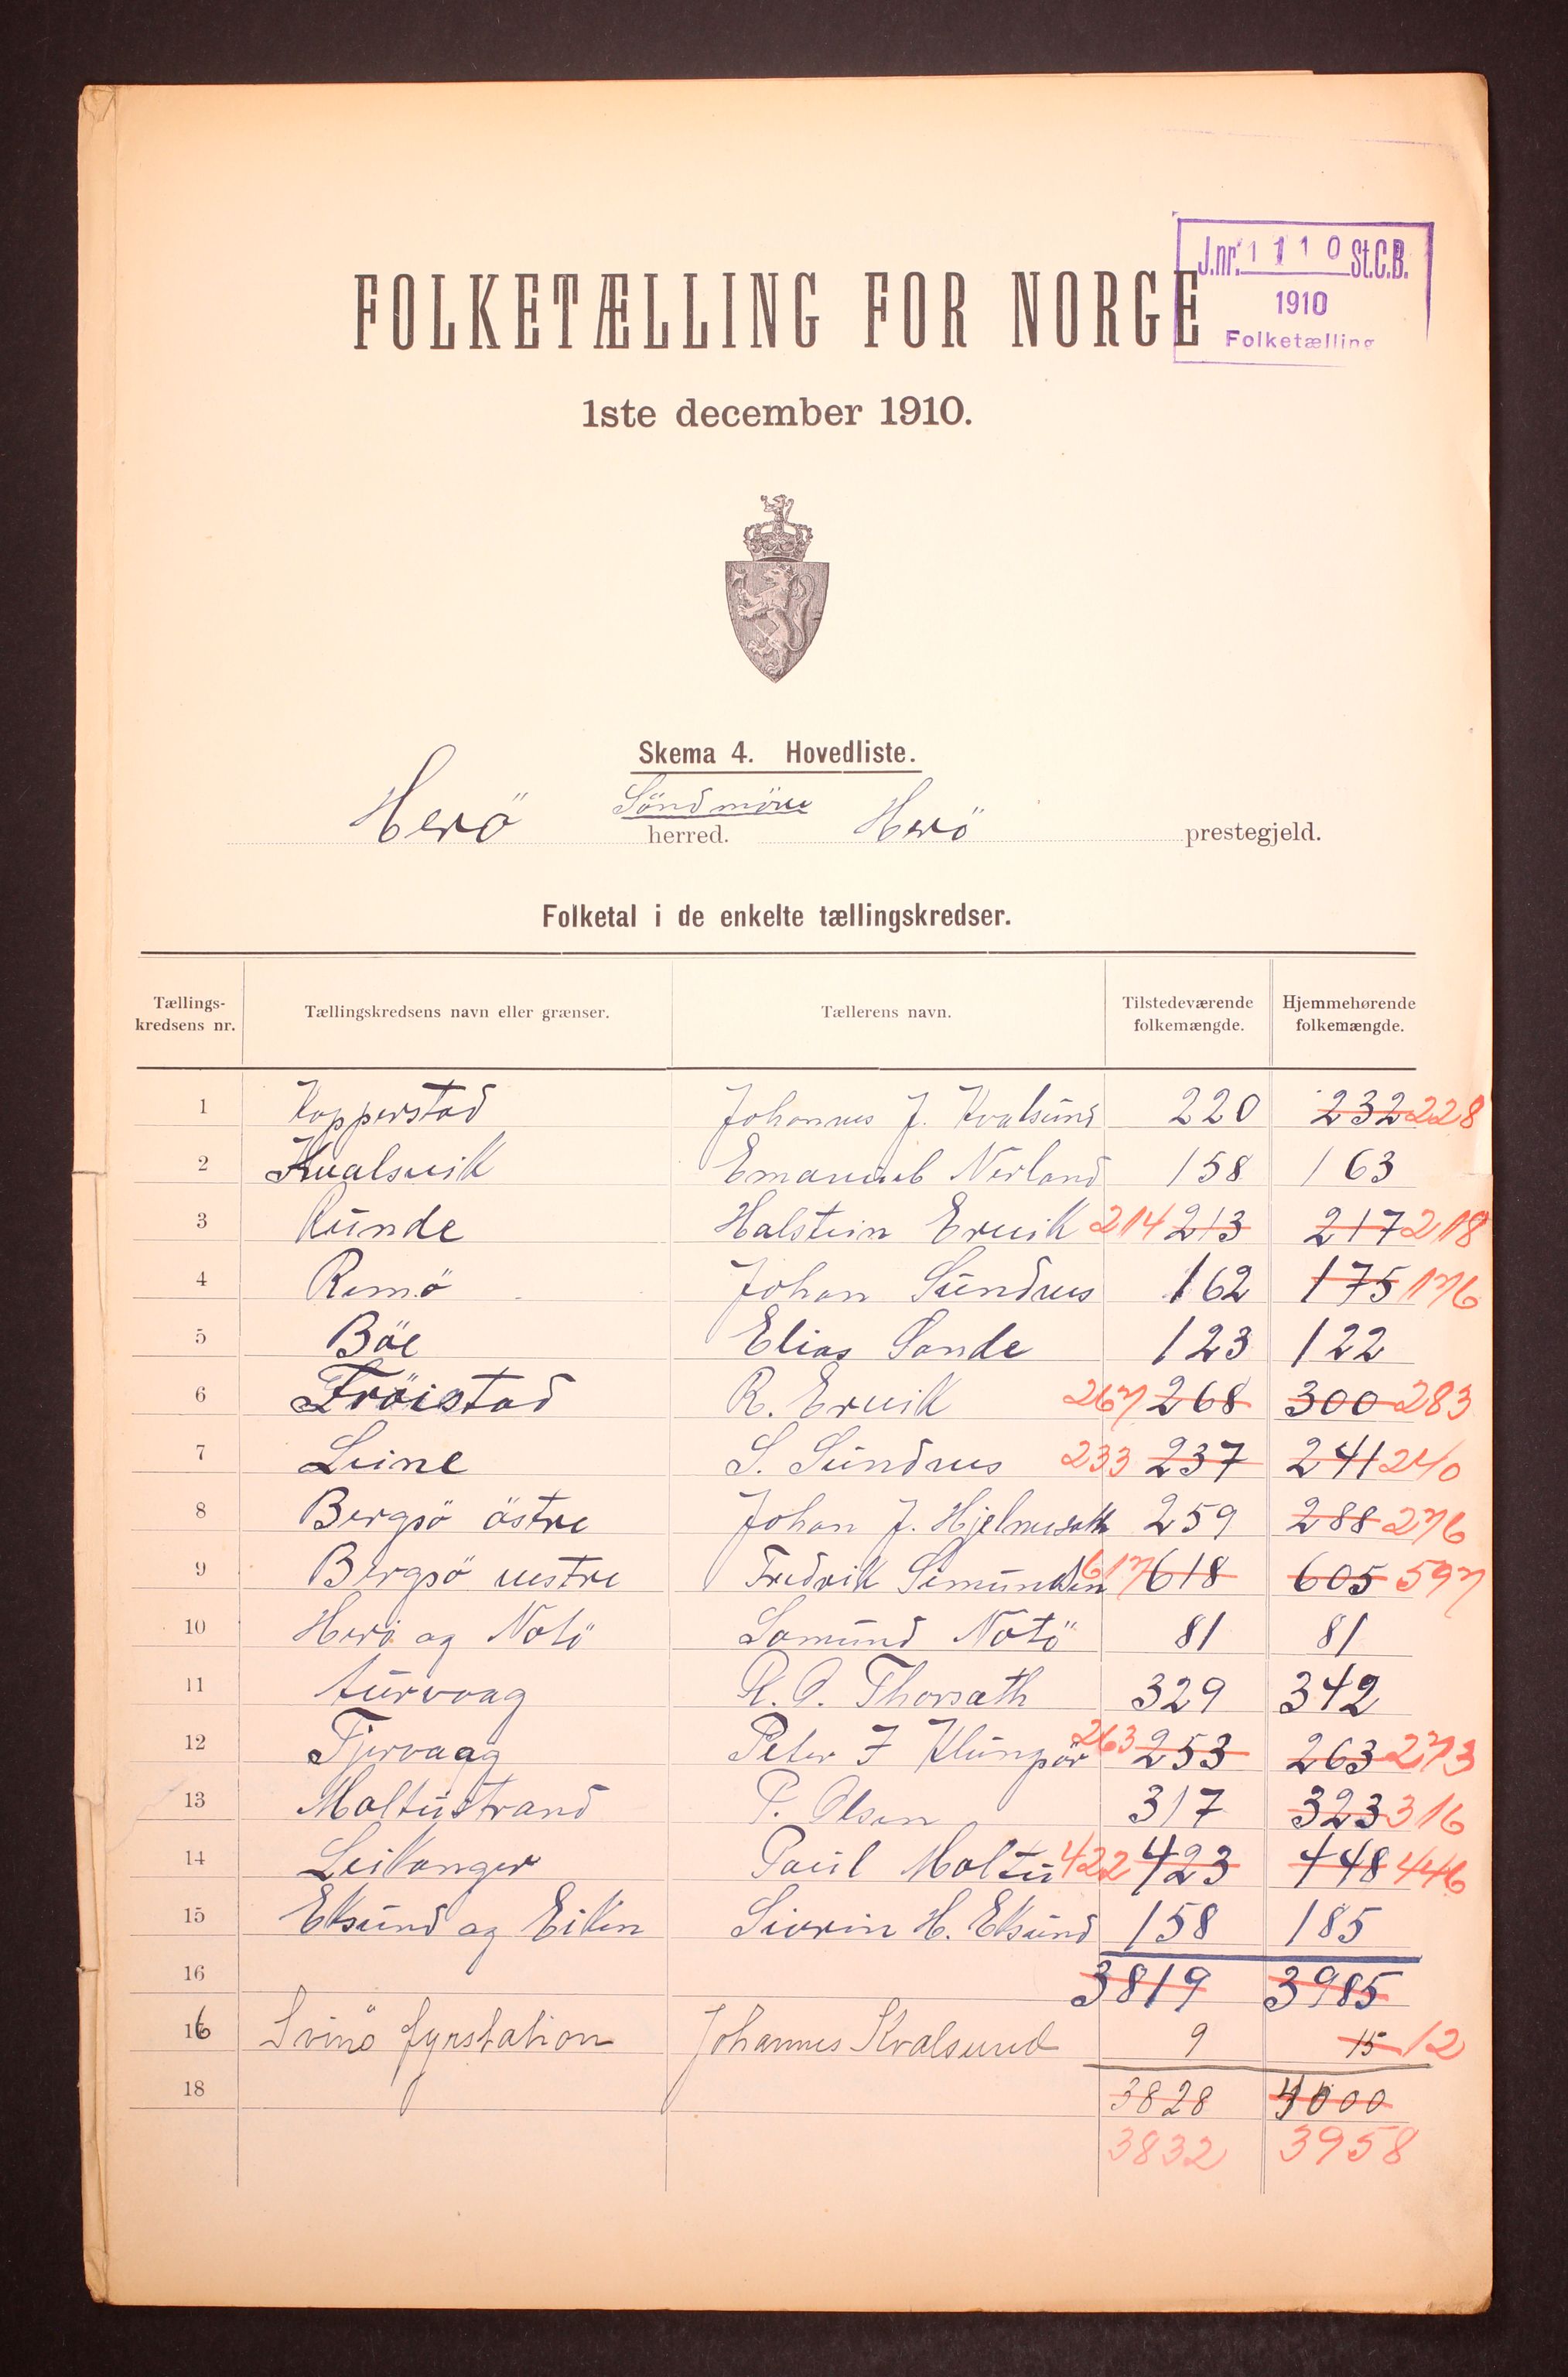 J.nr. 1110 St.C.B.
1910
Folketælling
FOLKETÆLLING FOR NORGE
1ste december 1910.
Skema 4. Hovedliste.
Söndmöre
Herö herred. Herö prestegjeld.
Folketal i de enkelte tællingskredser.
Tællings-kredsens nr. Tællingskredsens navn eller grænser. Tællerens navn. Tilstedeværende folkemængde. Hjemmehørende folkemængde.
1 Kopperstad Johannes J. Kvalsund 220 232 228
2 Kvalsvik Emanuel Nerland 158 163
3 Runde Halstein Ervik 214 213 217 218
4 Remö Johan Sundnes 162 175 176
5 Böe Elias Sande 123 122
6 Fröistad R. Ervik 267 268 300 283
7 Leine S. Sundnes 233 237 241 240
8 Bergsö östre Johan J. Hjelmeseth 259 288 276
9 Bergsö vestre Fredrik Simundsen 617 618 605 597
10 Herö og Notö Samund Notö 81 81
11 turvaag O. Thorsæth 329 342
12 Tjervaag Peter J Klungsör 263 253 263 273
13 Moltustrand P. Olsen 317 323 316
14 Leikanger Paul Moltu 422 423 448 446
15 Eksund og Eiken Siverin H. Eksund 158 185
16 3819 3985
16 Svinö fyrstation Johannes Kvalsund 9 15 12
18 3828 4000
3832 3958